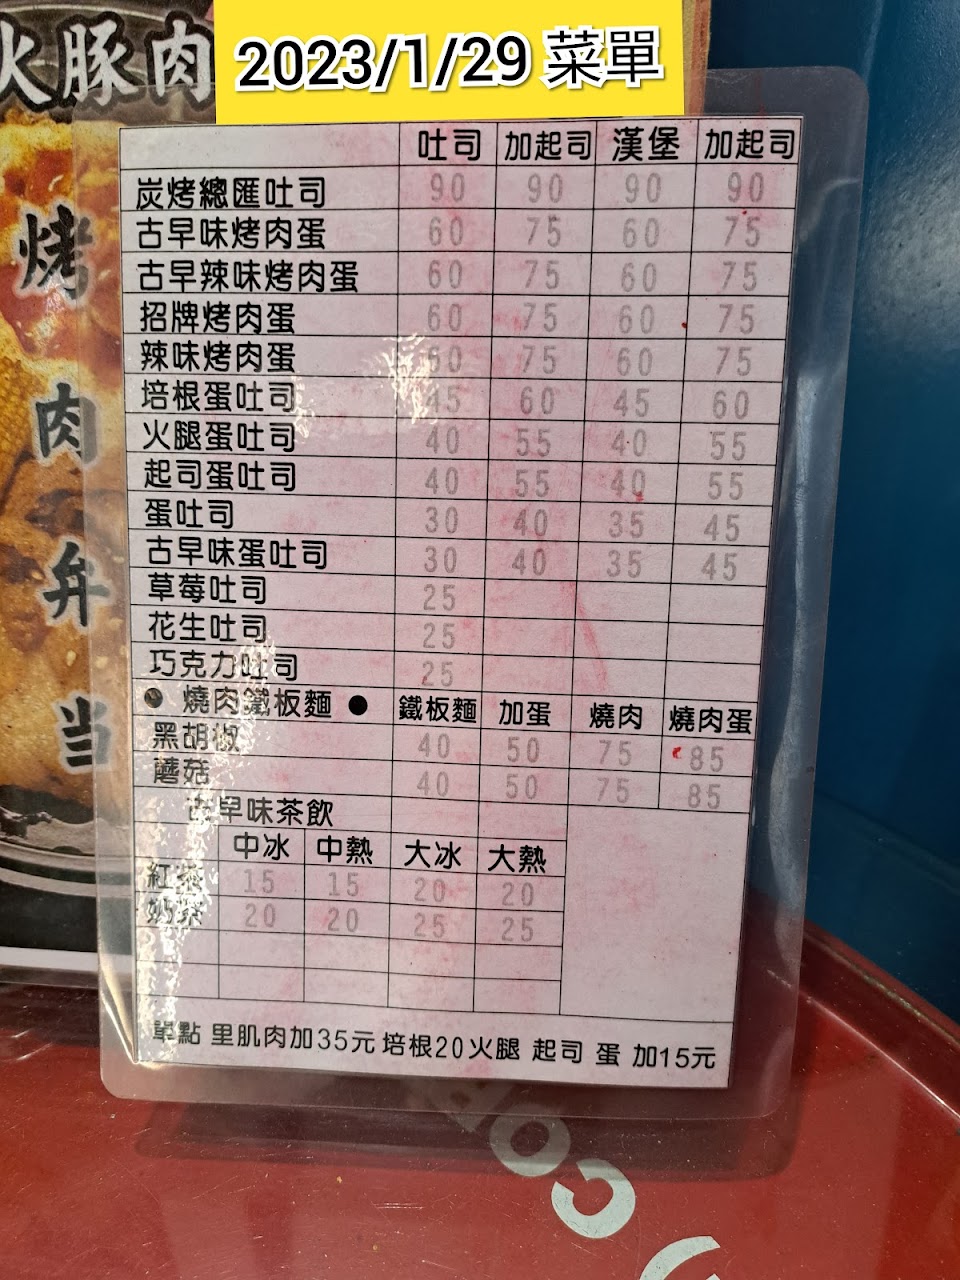 2023/1/29 菜單
火豚肉
烤
肉
弁
当
吐司 加起司 漢堡 加起司
炭烤總匯吐司 90 90 90 90
古早味烤肉蛋 60 75 60 75
古早辣味烤肉蛋 60 75 60 75
招牌烤肉蛋 60 75 60 75
辣味烤肉蛋 60 75 60 75
培根蛋吐司 45 60 45 60
火腿蛋吐司 40 55 40 55
起司蛋吐司 40 55 40 55
蛋吐司 30 40 35 45
古早味蛋吐司 30 40 35 45
草莓吐司 25
花生吐司 25
巧克力吐司 25
● 燒肉鐵板麵 ● 鐵板麵 加蛋 燒肉 燒肉蛋
黑胡椒 40 50 75 85
蘑菇 40 50 75 85
古早味茶飲
中冰 中熱 大冰 大熱
紅茶 15 15 20 20
奶茶 20 20 25 25
單點 里肌肉加35元 培根20火腿 起司 蛋 加15元